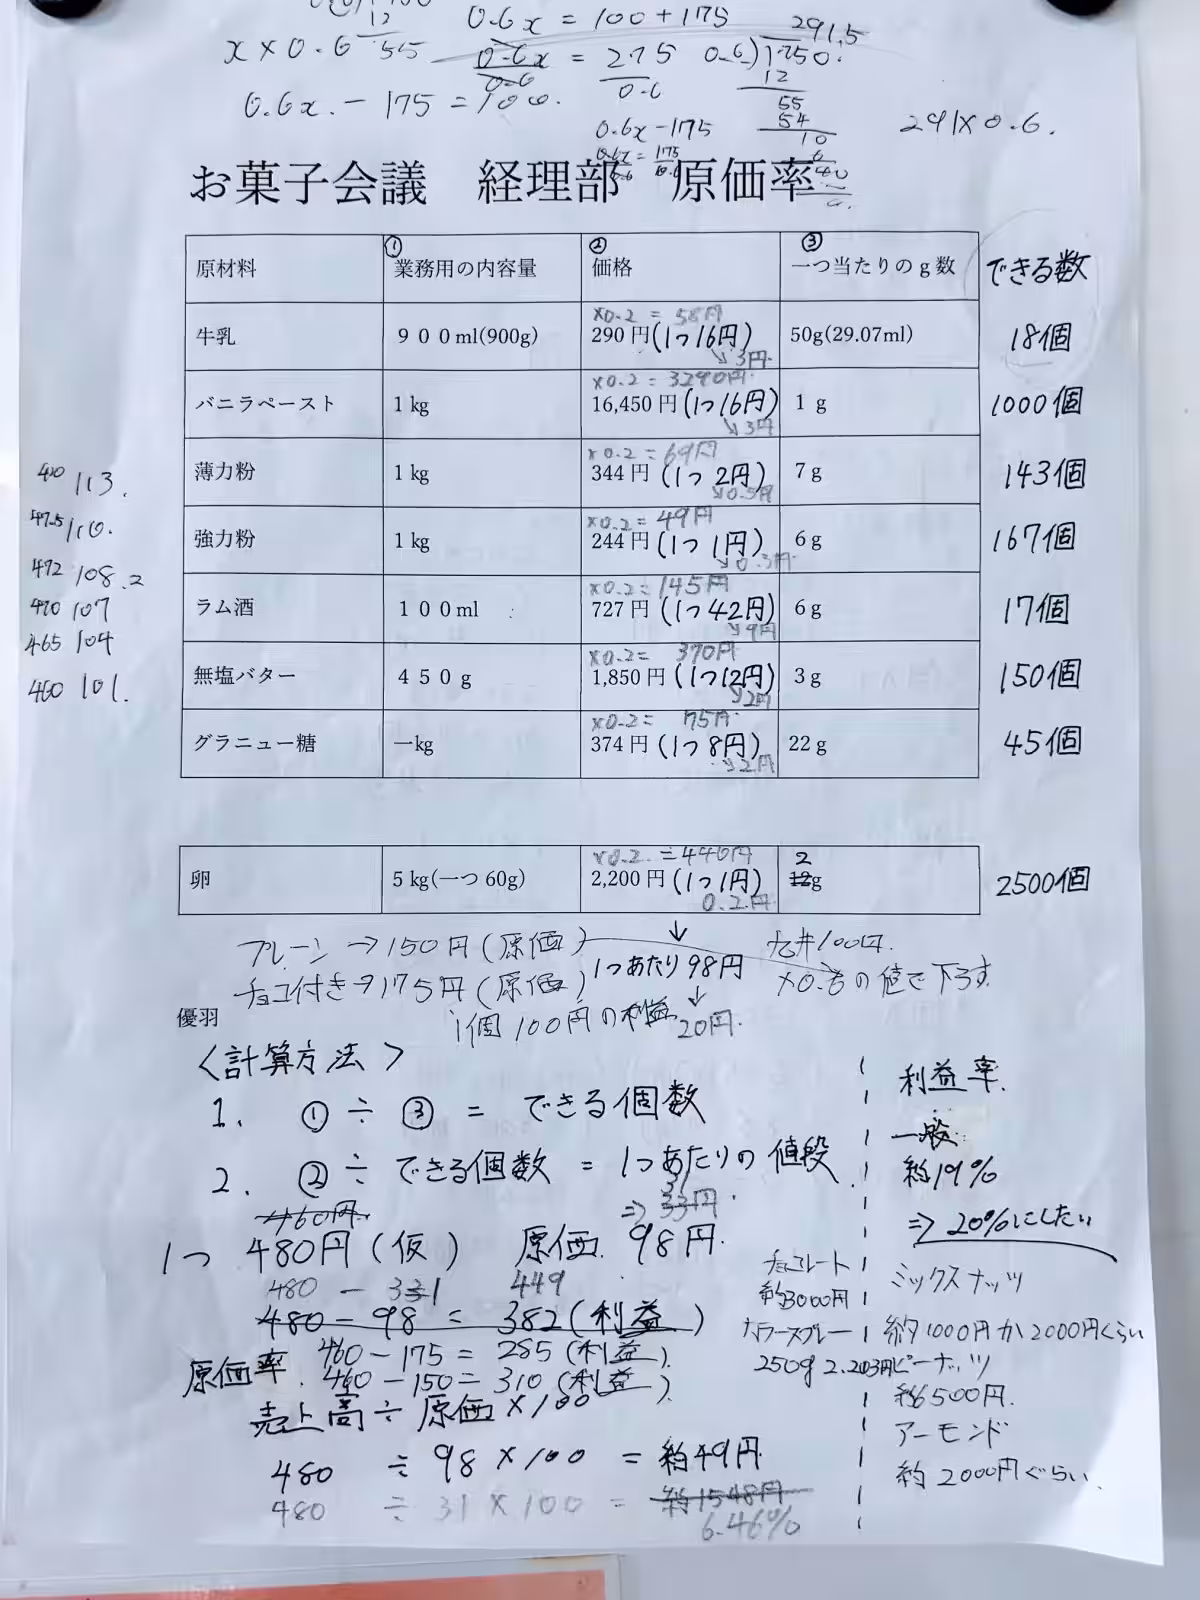 12
x×0.6 55
0.6x = 100+175
0.6x = 275
0.6 0.6
291.5
0.6)1750.
12
55
54
10
6
40
0.6x - 175 = 100.
0.6x-175
0.6x = 175
291×0.6.
お菓子会議 経理部 原価率
原材料 ①業務用の内容量 ②価格 ③一つ当たりのg数 できる数
×0.2 = 58円
牛乳 900ml(900g) 290円(1つ16円) 50g(29.07ml) 18個
↘3円
×0.2 = 3290円
バニラペースト 1kg 16,450円(1つ16円) 1g 1000個
↘3円
×0.2 = 69円
薄力粉 1kg 344円(1つ2円) 7g 143個
↘0.5円
×0.2 = 49円
強力粉 1kg 244円(1つ1円) 6g 167個
↘0.3円
×0.2 = 145円
ラム酒 100ml 727円(1つ42円) 6g 17個
↘9円
×0.2 = 370円
無塩バター 450g 1,850円(1つ12円) 3g 150個
↘2円
×0.2 = 75円
グラニュー糖 一kg 374円(1つ8円) 22g 45個
↘2円
400 113.
497.5 110.
472 108.2
470 107
465 104
460 101.
×0.2 = 440円
卵 5kg(一つ60g) 2,200円(1つ1円) 2g 2500個
0.2円
プレーン→150円(原価)
チョコ付き→175円(原価)
↓
1つあたり98円
↓
20円.
×0.6の値で下ろす
1個100円の利益
優羽
〈計算方法〉
1. ① ÷ ③ = できる個数
2. ② ÷ できる個数 = 1つあたりの値段
460円
⇒ 33円
31
1つ 480円(仮) 原価. 98円.
480 - 331 449
480 - 98 = 382(利益)
460-175 = 285(利益)
原価率. 460-150 = 310(利益)
売上高 ÷ 原価×100
480 ÷ 98 × 100 = 約49円
480 ÷ 31 × 100 = 約1548円
6.46%
利益率.
一般
約19%
⇒20%にしたい
チョコレート
約3000円
ミックスナッツ
約1000円か2000円ぐらい
カラースプレー
250g 2.203円
ピーナッツ
約6500円.
アーモンド
約2000円ぐらい.